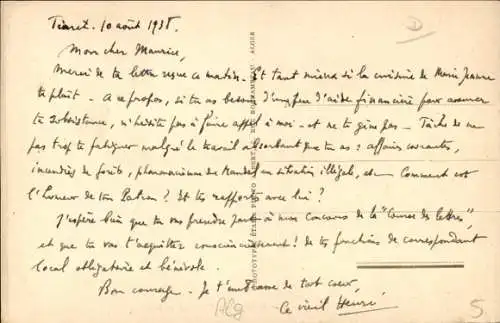 Tiaret. 10 août 1938.
Mon cher Maurice,
Merci de ta lettre reçue ce matin. Et tant mieux si la cuisine de Marie Jeanne
te plaît - A ce propos, si tu as besoin d'un peu d'aide financière pour assurer
ta subsistance, n'hésite pas à faire appel à moi - et ne te gêne pas - Tâche de ne
pas trop te fatiguer malgré le travail absorbant que tu as : affaires courantes,
incendies de forêts, en situation illégale, etc - Comment est
l'humeur de ton Patron ? Et tes rapports avec lui ?
J'espère bien que tu vas prendre part à mon Concours de la "Course des lettres",
et que tu vas t'acquitter consciencieusement ! de tes fonctions de correspondant
local obligatoire et bénévole.
Bon courage - Je t'embrasse de tout coeur,
Ce vieil Henri
D
Alg
5